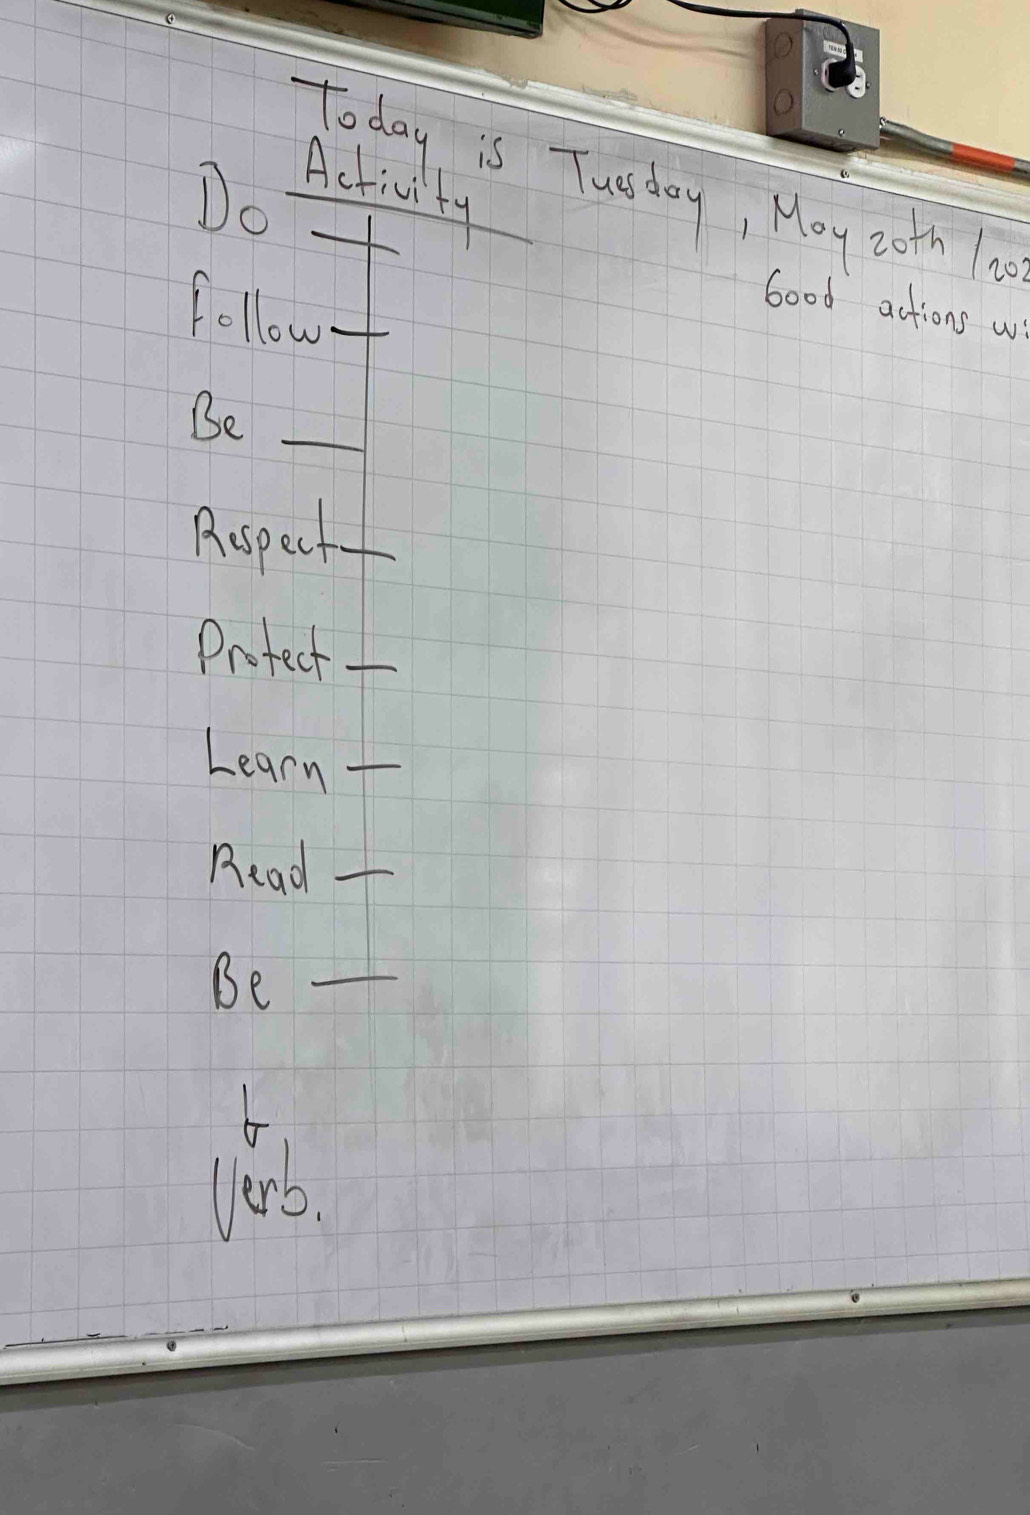 Today is Tuesday, May 20th /202
Activity
Good actions
Do
Follow
Be
Respect
Protect
Learn
Read
Be
Verb.